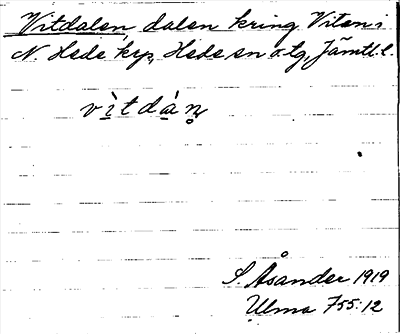 Vitdalen, dalen kring Viten i
N. Hede krp, Hede sn o. tg, Jämtl. l.
vìtdàn̥
S. Åsander 1919
Ulma 755:12